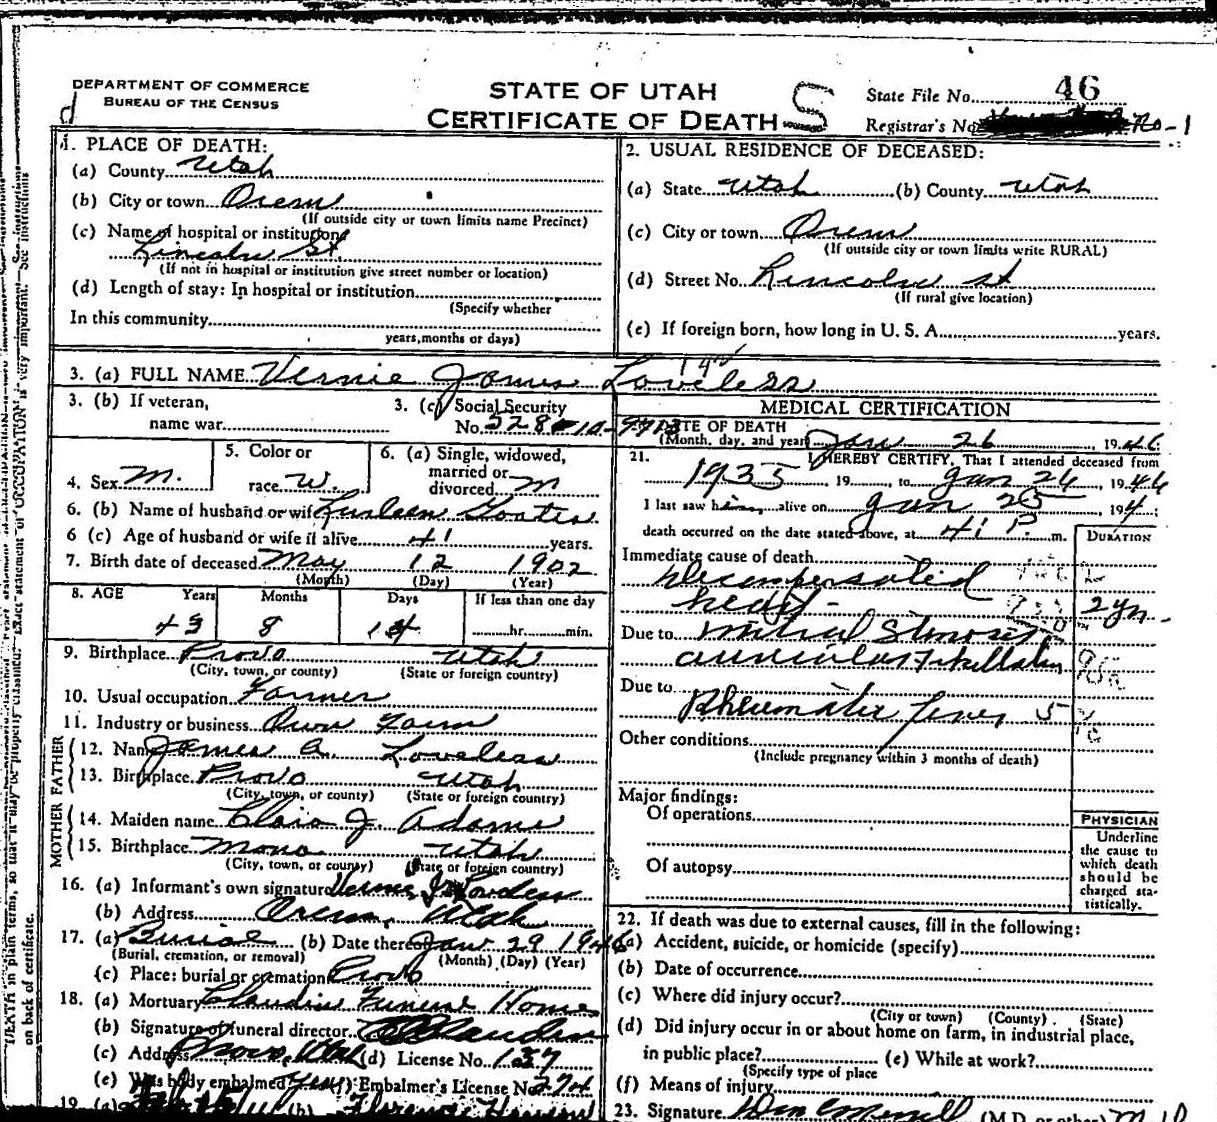 DEPARTMENT OF COMMERCE
BUREAU OF THE CENSUS
d
STATE OF UTAH
CERTIFICATE OF DEATH
S
State File No. 46
Registrar's No. No-1
1. PLACE OF DEATH:
(a) County Utah
(b) City or town Orem
(If outside city or town limits name Precinct)
(c) Name of hospital or institution
Lincoln St.
(If not in hospital or institution give street number or location)
(d) Length of stay: In hospital or institution
(Specify whether
In this community
years, months or days)
2. USUAL RESIDENCE OF DECEASED:
(a) State Utah (b) County Utah
(c) City or town Orem
(If outside city or town limits write RURAL)
(d) Street No. Lincoln st
(If rural give location)
(e) If foreign born, how long in U. S. A. years.
3. (a) FULL NAME Vernie James Loveless
3. (b) If veteran,
name war
3. (c) Social Security
No. 528-10-
4. Sex M.
5. Color or
race W.
6. (a) Single, widowed,
married or
divorced M
6. (b) Name of husband or wife
6 (c) Age of husband or wife if alive 41 years.
7. Birth date of deceased May 12 1902
(Month) (Day) (Year)
8. AGE Years Months Days If less than one day
43 8 14 hr. min.
9. Birthplace Provo Utah
(City, town, or county) (State or foreign country)
10. Usual occupation Farmer
11. Industry or business Own Farm
FATHER
12. Name James A. Loveless
13. Birthplace Provo Utah
(City, town, or county) (State or foreign country)
MOTHER
14. Maiden name J. Adams
15. Birthplace Mona Utah
(City, town, or county) (State or foreign country)
16. (a) Informant's own signature
(b) Address Orem, Utah
17. (a) Burial (b) Date thereof Jan 29 1946
(Burial, cremation, or removal) (Month) (Day) (Year)
(c) Place: burial or cremation Provo
18. (a) Mortuary Claudin Funeral Home
(b) Signature of funeral director
(c) Address Provo, Utah (d) License No. 137
(e) Was body embalmed? Yes (f) Embalmer's License No. 274
19. (a) (b) Florence
MEDICAL CERTIFICATION
DATE OF DEATH
(Month, day, and year) Jan 26 1946
21. I HEREBY CERTIFY, That I attended deceased from
1935, 19 , to Jan 26, 1946
I last saw him alive on Jan 25, 194 ;
death occurred on the date stated above, at P. m.
DURATION
Immediate cause of death
Decompensated
heart - 2 yrs.
Due to Mitral Stenosis
auricular fibrillation
Due to
Rheumatic fever 5
Other conditions
(Include pregnancy within 3 months of death)
Major findings:
Of operations
Of autopsy
PHYSICIAN
Underline
the cause to
which death
should be
charged sta-
tistically.
22. If death was due to external causes, fill in the following:
(a) Accident, suicide, or homicide (specify)
(b) Date of occurrence
(c) Where did injury occur?
(City or town) (County) (State)
(d) Did injury occur in or about home on farm, in industrial place,
in public place? (e) While at work?
(Specify type of place
(f) Means of injury
23. Signature Merrill (M.D. or other) M.D.
on back of certificate.